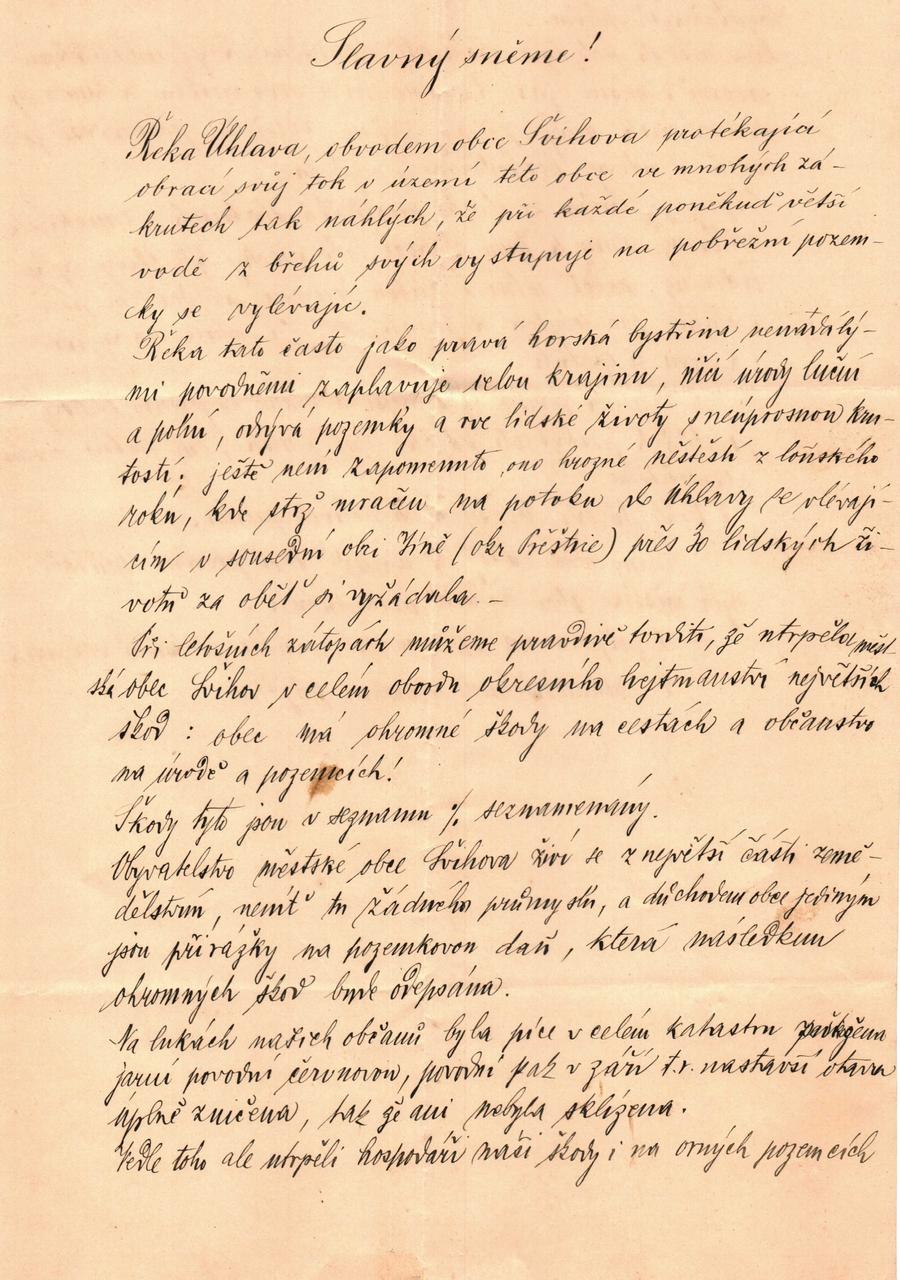 Slavný sněme!
Řeka Úhlava, obvodem obce Švihova protékající
obrací svůj tok v území této obce ve mnohých zá-
krutech tak náhlých, že při každé poněkud větší
vodě z břehů svých vystupuje na pobřežní pozem-
ky se vylévajíc.
Řeka tato často jako pravá horská bystřina nenadálý-
mi povodněmi zaplavuje celou krajinu, ničí úrody luční
a polní, odrývá pozemky a rve lidské životy s neúprosnou kru-
tostí; ještě není zapomenuto ono hrozné neštěstí z loňského
roku, kde strž mračen na potoku do Úhlavy se vlévají-
cím v sousední obci Jíně (okr Přeštice) přes 30 lidských ži-
votů za oběť si vyžádala. -
Při letošních zátopách můžeme pravdivě tvrditi, že utrpěla měst-
ská obec Švihov v celém obvodu okresního hejtmanství největších
škod: obec má ohromné škody na cestách a občanstvo
na úrodě a pozemcích!
Škody tyto jsou v seznamu ./. seznamenány.
Obyvatelstvo městské obce Švihova živí se z největší části země-
dělstvím, neníť tu žádného průmyslu, a důchodem obce jediným
jsou přirážky na pozemkovou daň, která následkem
ohromných škod bude odepsána.
Na lukách našich občanů byla píce v celém katastru
jarní povodní červnovou, povodní pak v září t.r. nastavší otava
úplně zničena, tak že ani nebyla sklizena.
Vedle toho ale utrpěli hospodáři naši škody i na orných pozemcích